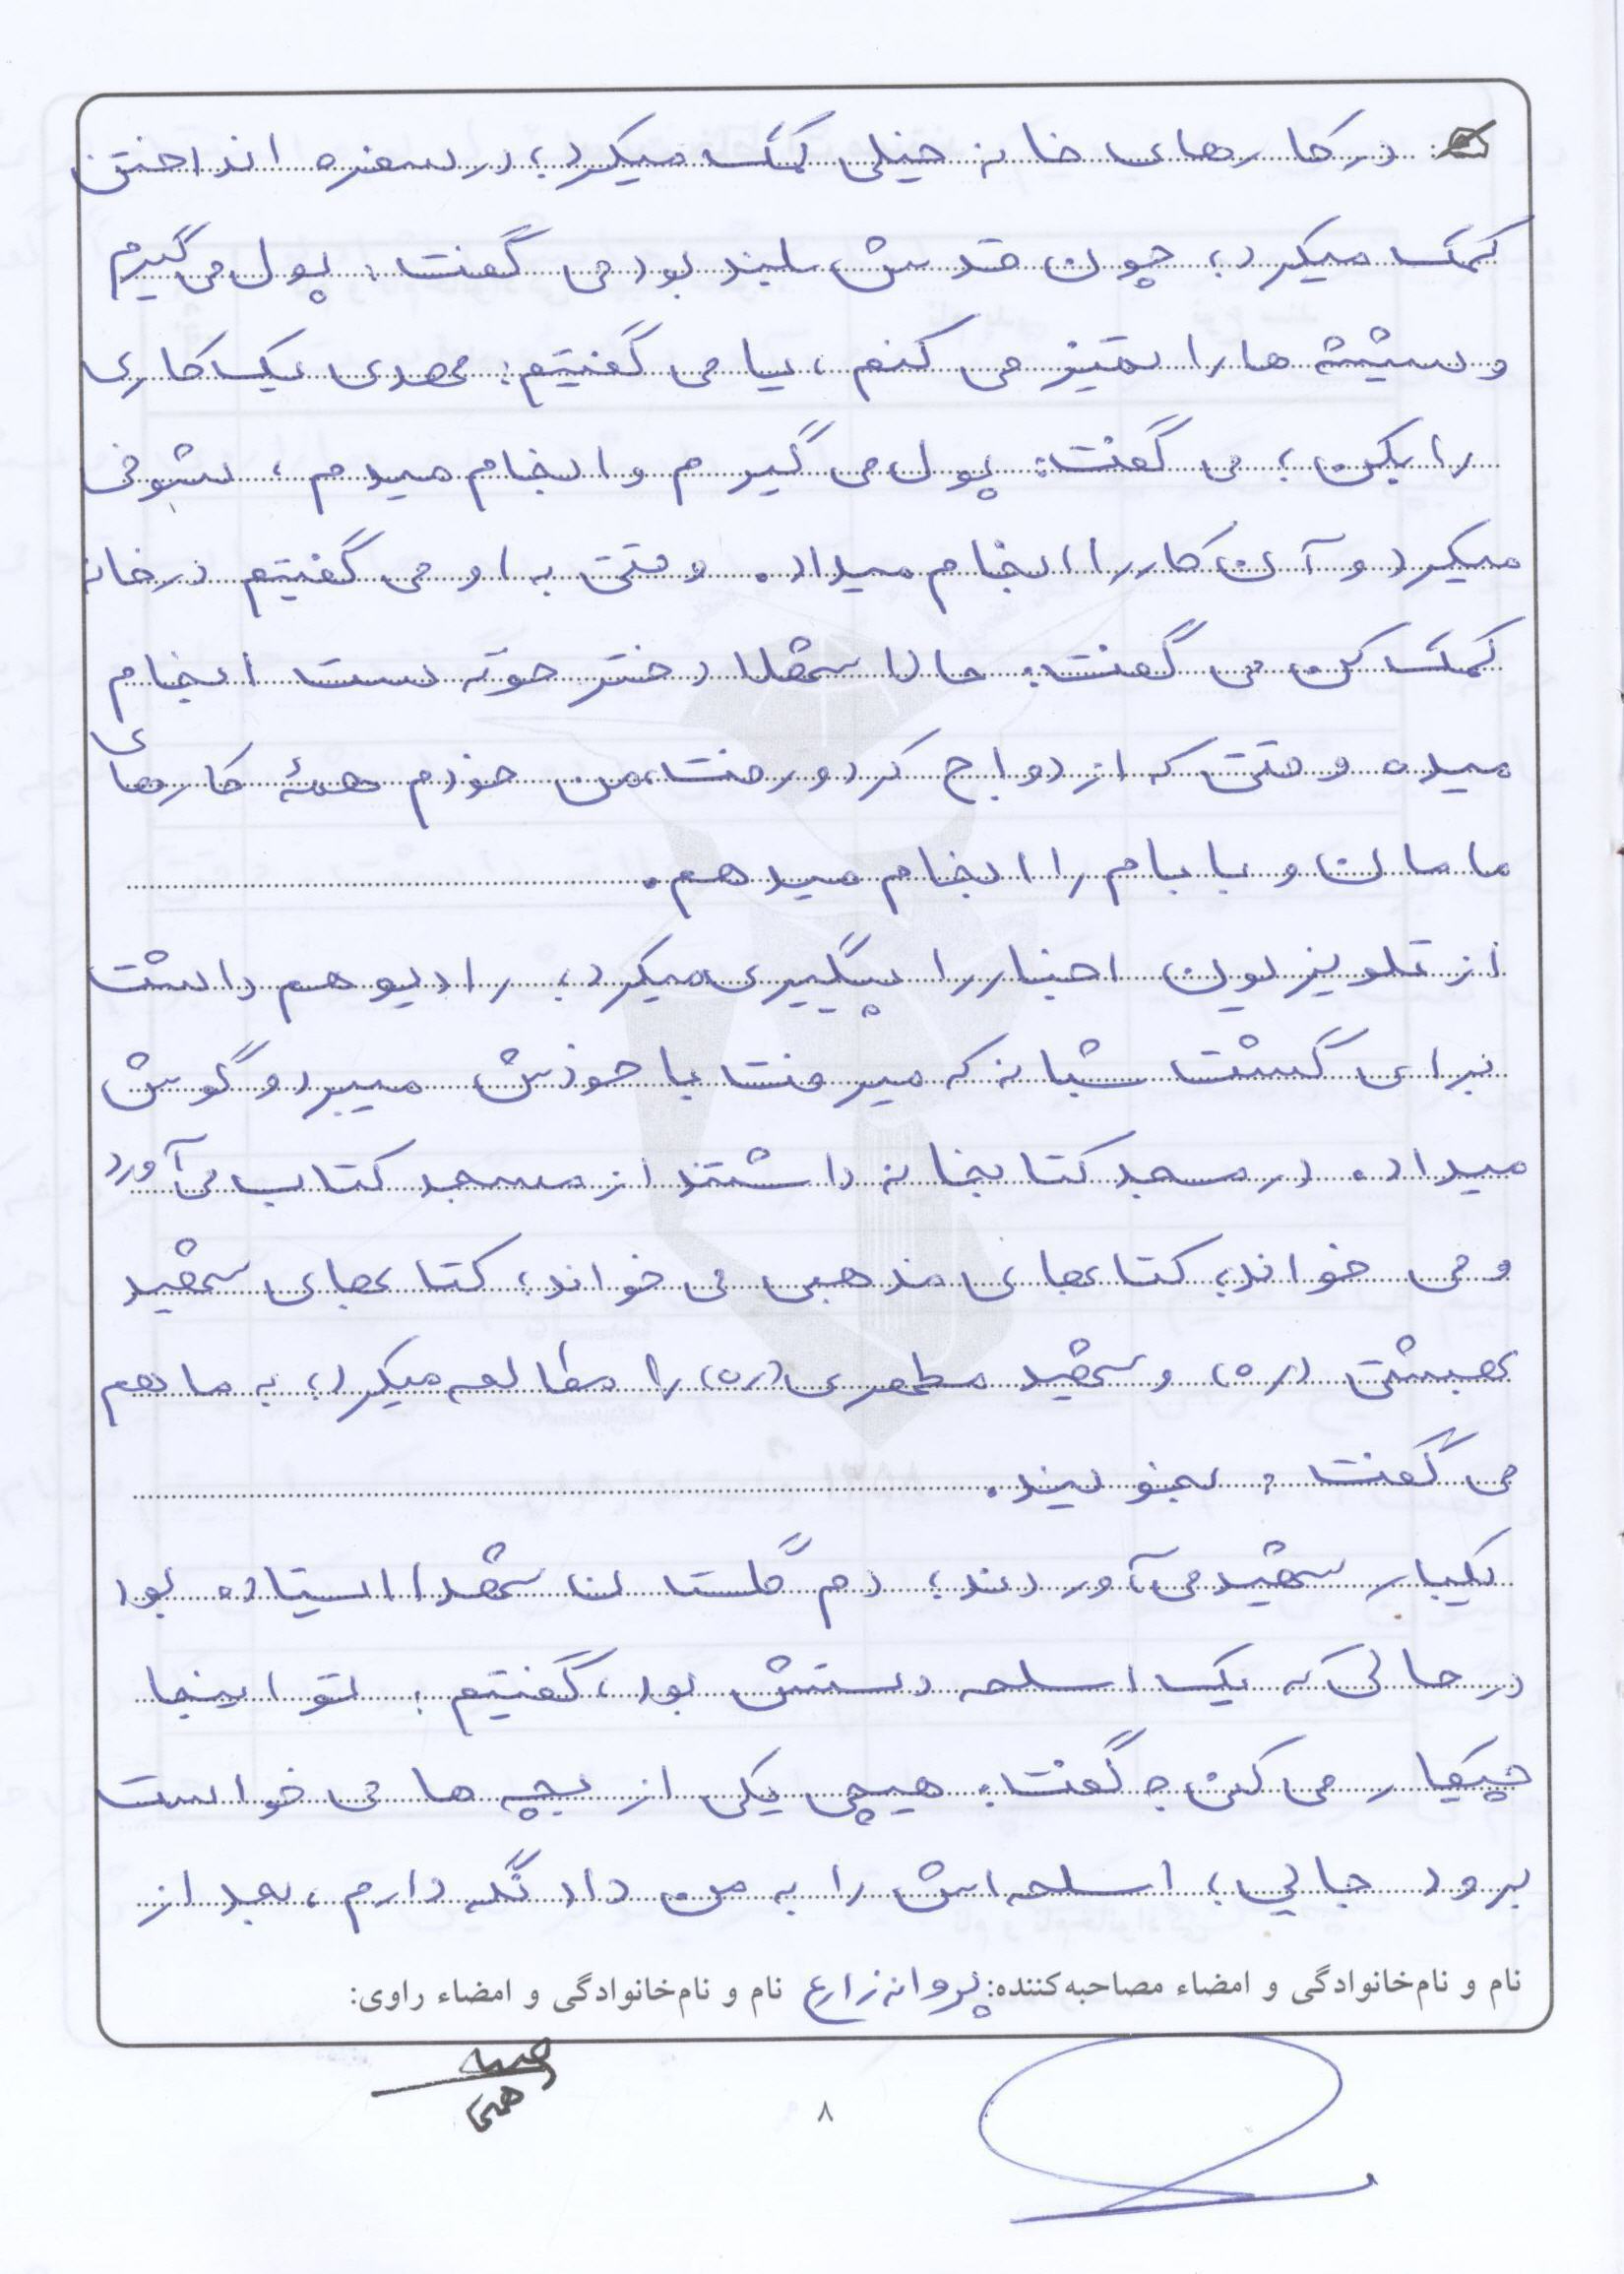 در کارهای خانه خیلی کمک میکرد، در سفره انداختن
کمک میکرد، چون قدش بلند بود می گفت: پول می گیرم
و شیشه ها را تمیز می کنم، یا می گفتیم: مهدی یک کاری
را بکن؛ می گفت: پول می گیرم و انجام میدم، شوخی
میکرد و آن کار را انجام میداد. وقتی به او می گفتیم در خانه
کمک کن می گفت: حالا شهلا دختر خونه ست انجام
میده وقتی که ازدواج کرد و رفت، من خودم همهٔ کارهای
مامان و بابام را انجام میدهم.
از تلویزیون اخبار را پیگیری میکرد، رادیو هم داشت
برای گشت شبانه که میرفت با خودش میبرد و گوش
میداد. در مسجد کتابخانه داشتند از مسجد کتاب می آورد
و می خواند، کتابهای مذهبی می خواند، کتابهای شهید
بهشتی (ره) و شهید مطهری (ره) را مطالعه میکرد، به ما هم
می گفت: بخونید.
یکبار شهید می آوردند، دم گلستان شهدا ایستاده بود
در حالی که یک اسلحه دستش بود، گفتیم: تو اینجا
چیکار می کنی؟ گفت: هیچی یکی از بچه ها می خواست
برود جایی؛ اسلحه اش را به من داد نگه دارم، بعد از
نام و نام‌خانوادگی و امضاء مصاحبه‌کننده: پروانه زارع نام و نام‌خانوادگی و امضاء راوی:
۸